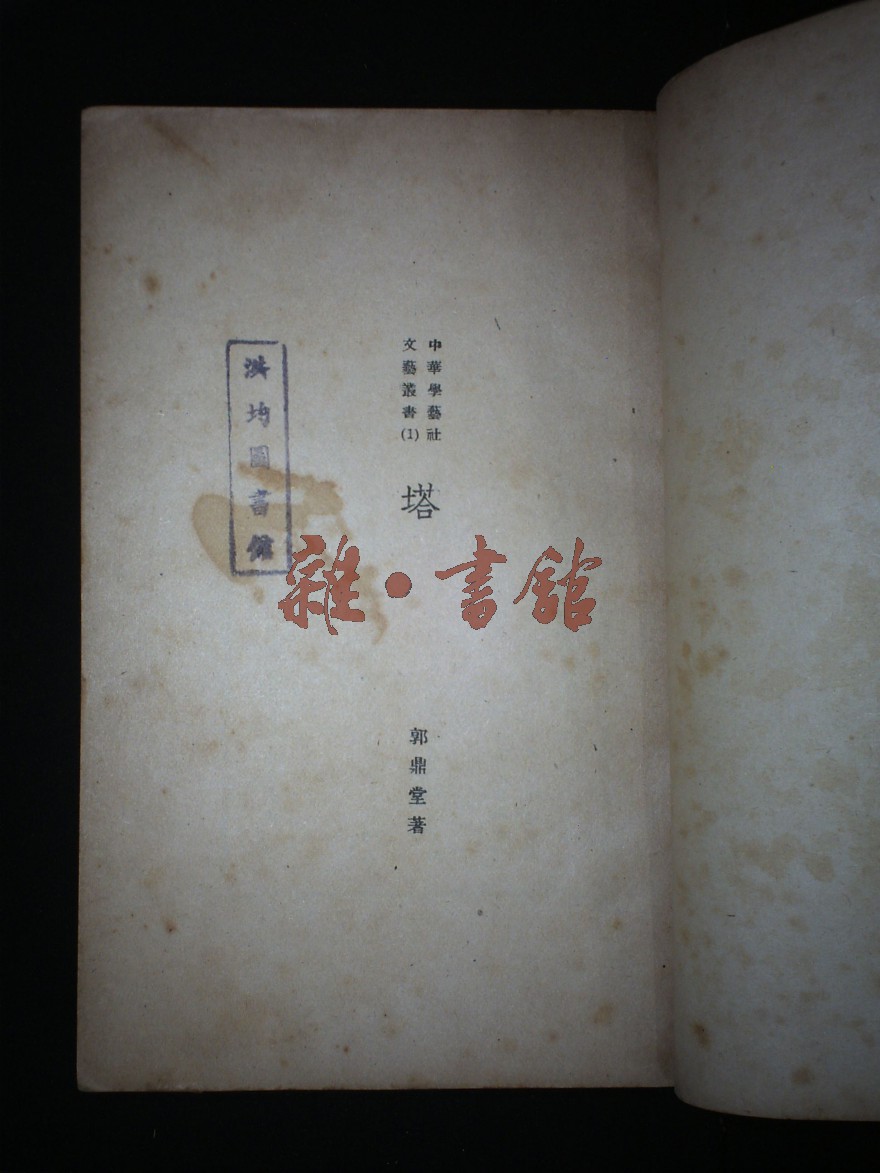 中華學藝社
文藝叢書(1)
塔
郭鼎堂著
洪均圖書館
雜·書館